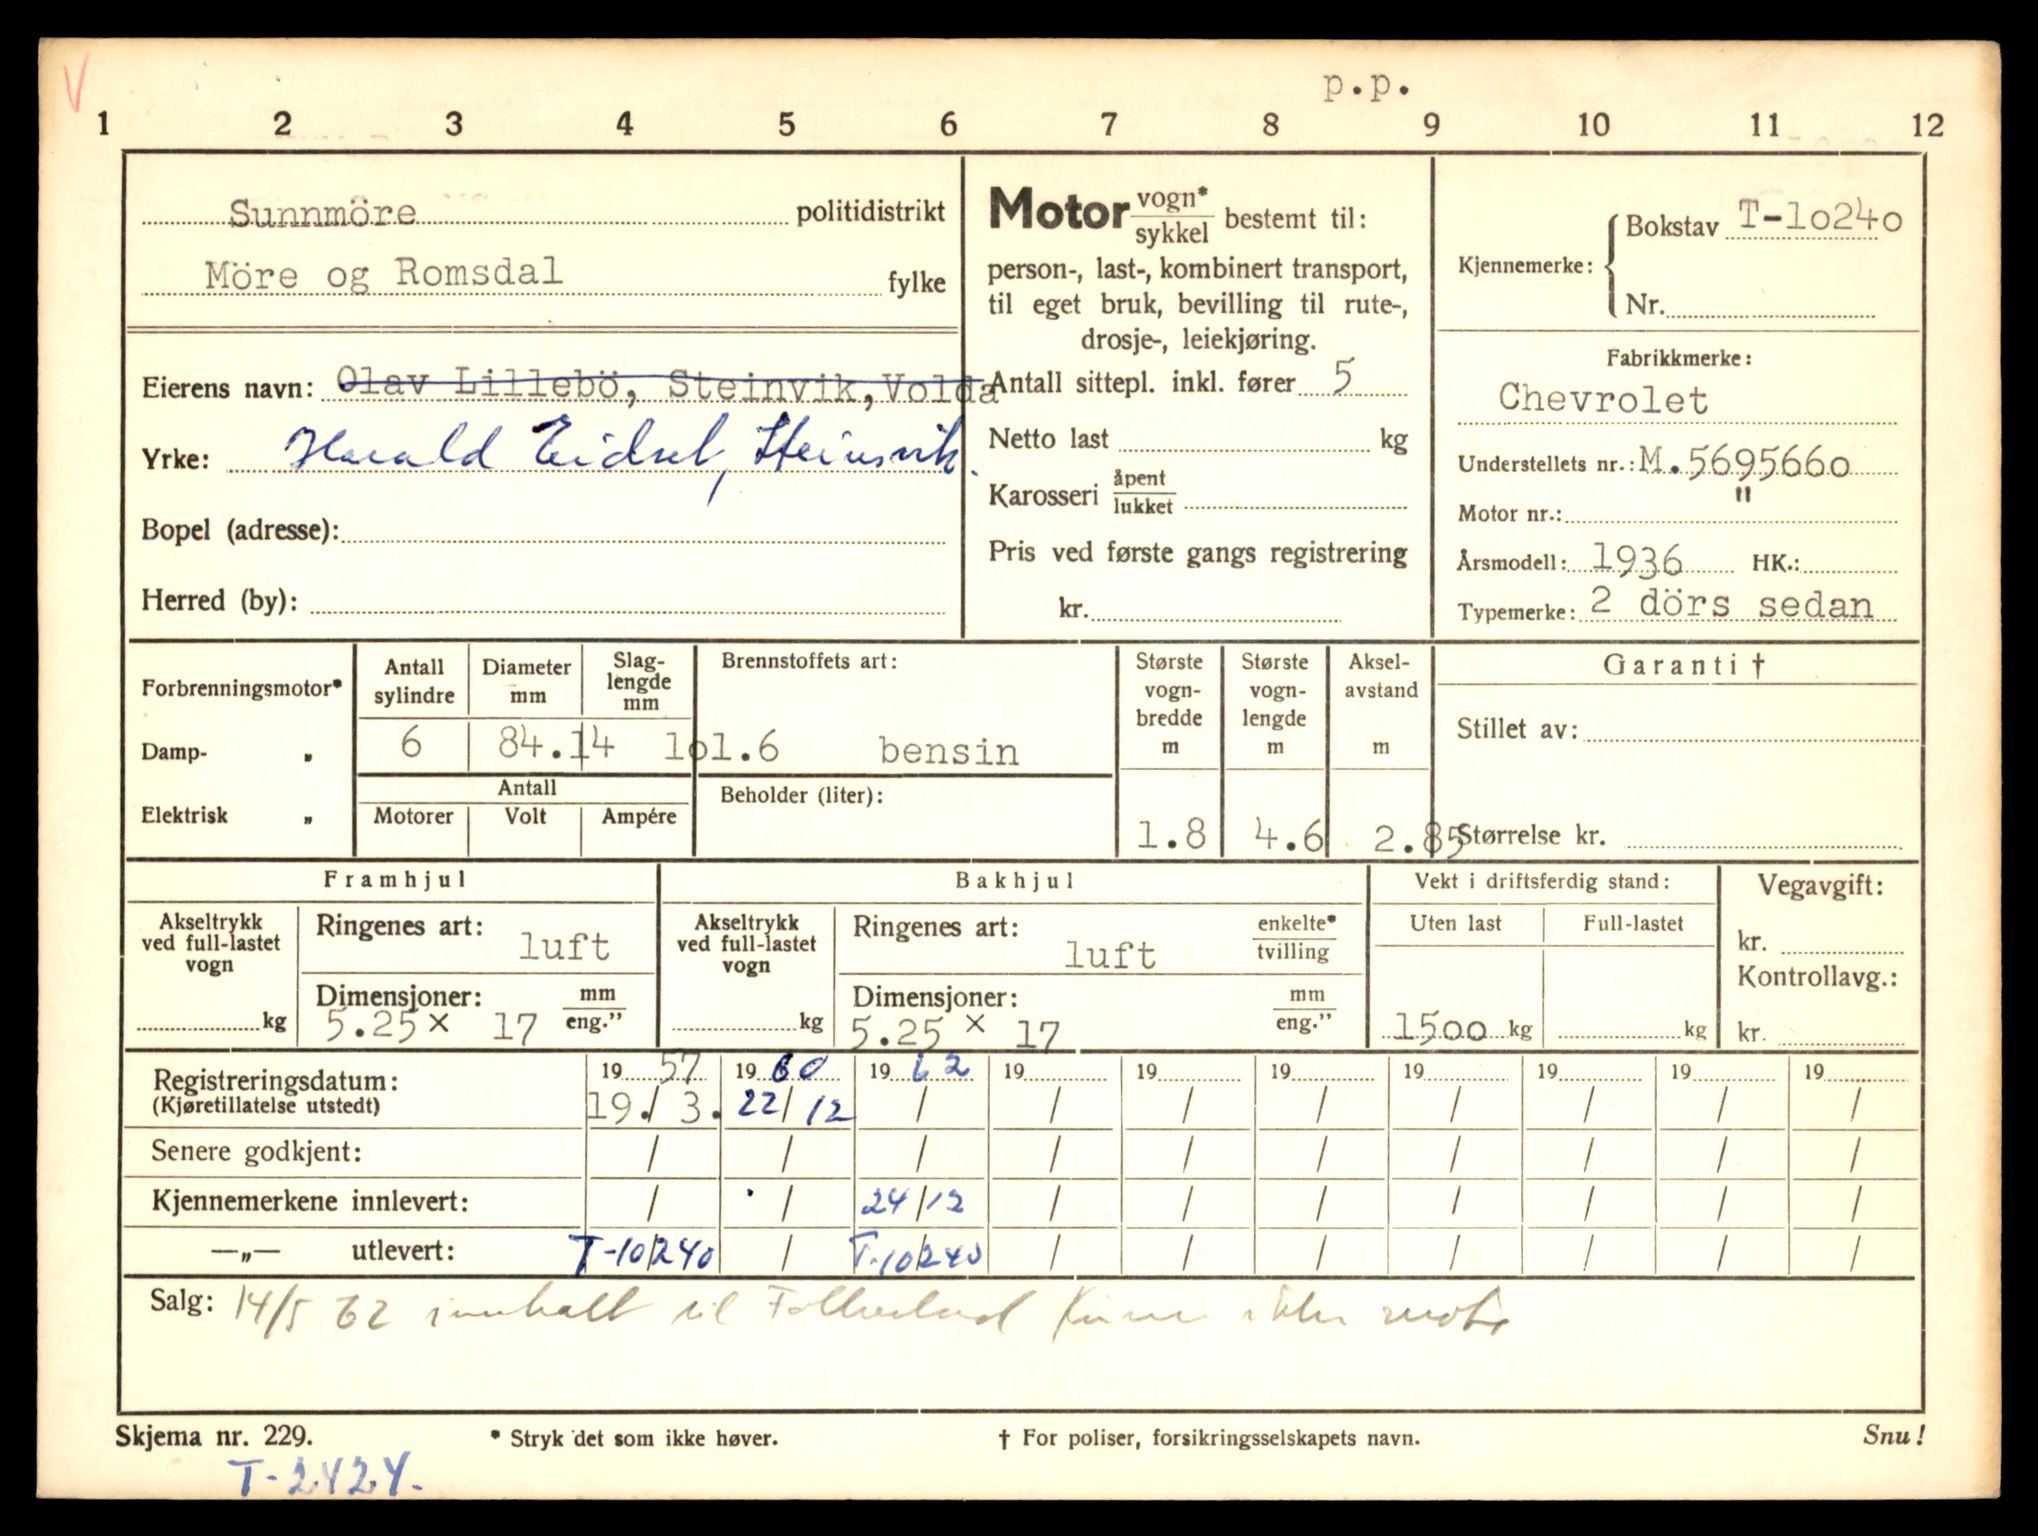 V
p.p.
1 2 3 4 5 6 7 8 9 10 11 12
Sunnmöre politidistrikt
Möre og Romsdal fylke
Eierens navn: Olav Lillebö, Steinvik, Volda
Yrke: Harald Eidset, Steinsvik.
Bopel (adresse):
Herred (by):
Motor vogn* / sykkel bestemt til:
person-, last-, kombinert transport,
til eget bruk, bevilling til rute-,
drosje-, leiekjøring.
Antall sittepl. inkl. fører 5
Netto last kg
Karosseri åpent / lukket
Pris ved første gangs registrering
kr.
Kjennemerke: Bokstav T-10240
Nr.
Fabrikkmerke:
Chevrolet
Understellets nr.: M.5695660
Motor nr.: "
Årsmodell: 1936 HK.:
Typemerke: 2 dörs sedan
Forbrenningsmotor*
Damp- „
Elektrisk „
Antall sylindre
6
Diameter mm
84.14
Slag-
lengde
mm
101.6
Antall
Motorer Volt Ampére
Brennstoffets art:
bensin
Beholder (liter):
Største
vogn-
bredde
m
1.8
Største
vogn-
lengde
m
4.6
Aksel-
avstand
m
2.85
Garanti †
Stillet av:
Størrelse kr.
Framhjul
Akseltrykk
ved full-lastet
vogn
kg
Ringenes art: luft
Dimensjoner: mm / eng.”
5.25 x 17
Bakhjul
Akseltrykk
ved full-lastet
vogn
kg
Ringenes art: luft enkelte* / tvilling
Dimensjoner: mm / eng.”
5.25 x 17
Vekt i driftsferdig stand:
Uten last Full-lastet
1500 kg kg
Vegavgift:
kr.
Kontrollavg.:
kr.
Registreringsdatum: 19 57 19 60 19 62 19 19 19 19 19 19 19
(Kjøretillatelse utstedt) 19./3. 22/12 / / / / / / / /
Senere godkjent: / / / / / / / / / /
Kjennemerkene innlevert: / / 24/12 / / / / / / /
—„— utlevert: T-10240 / T-10240 / / / / / / /
Salg: 14/5 62 til
Skjema nr. 229. * Stryk det som ikke høver. † For poliser, forsikringsselskapets navn. Snu!
T-2424.